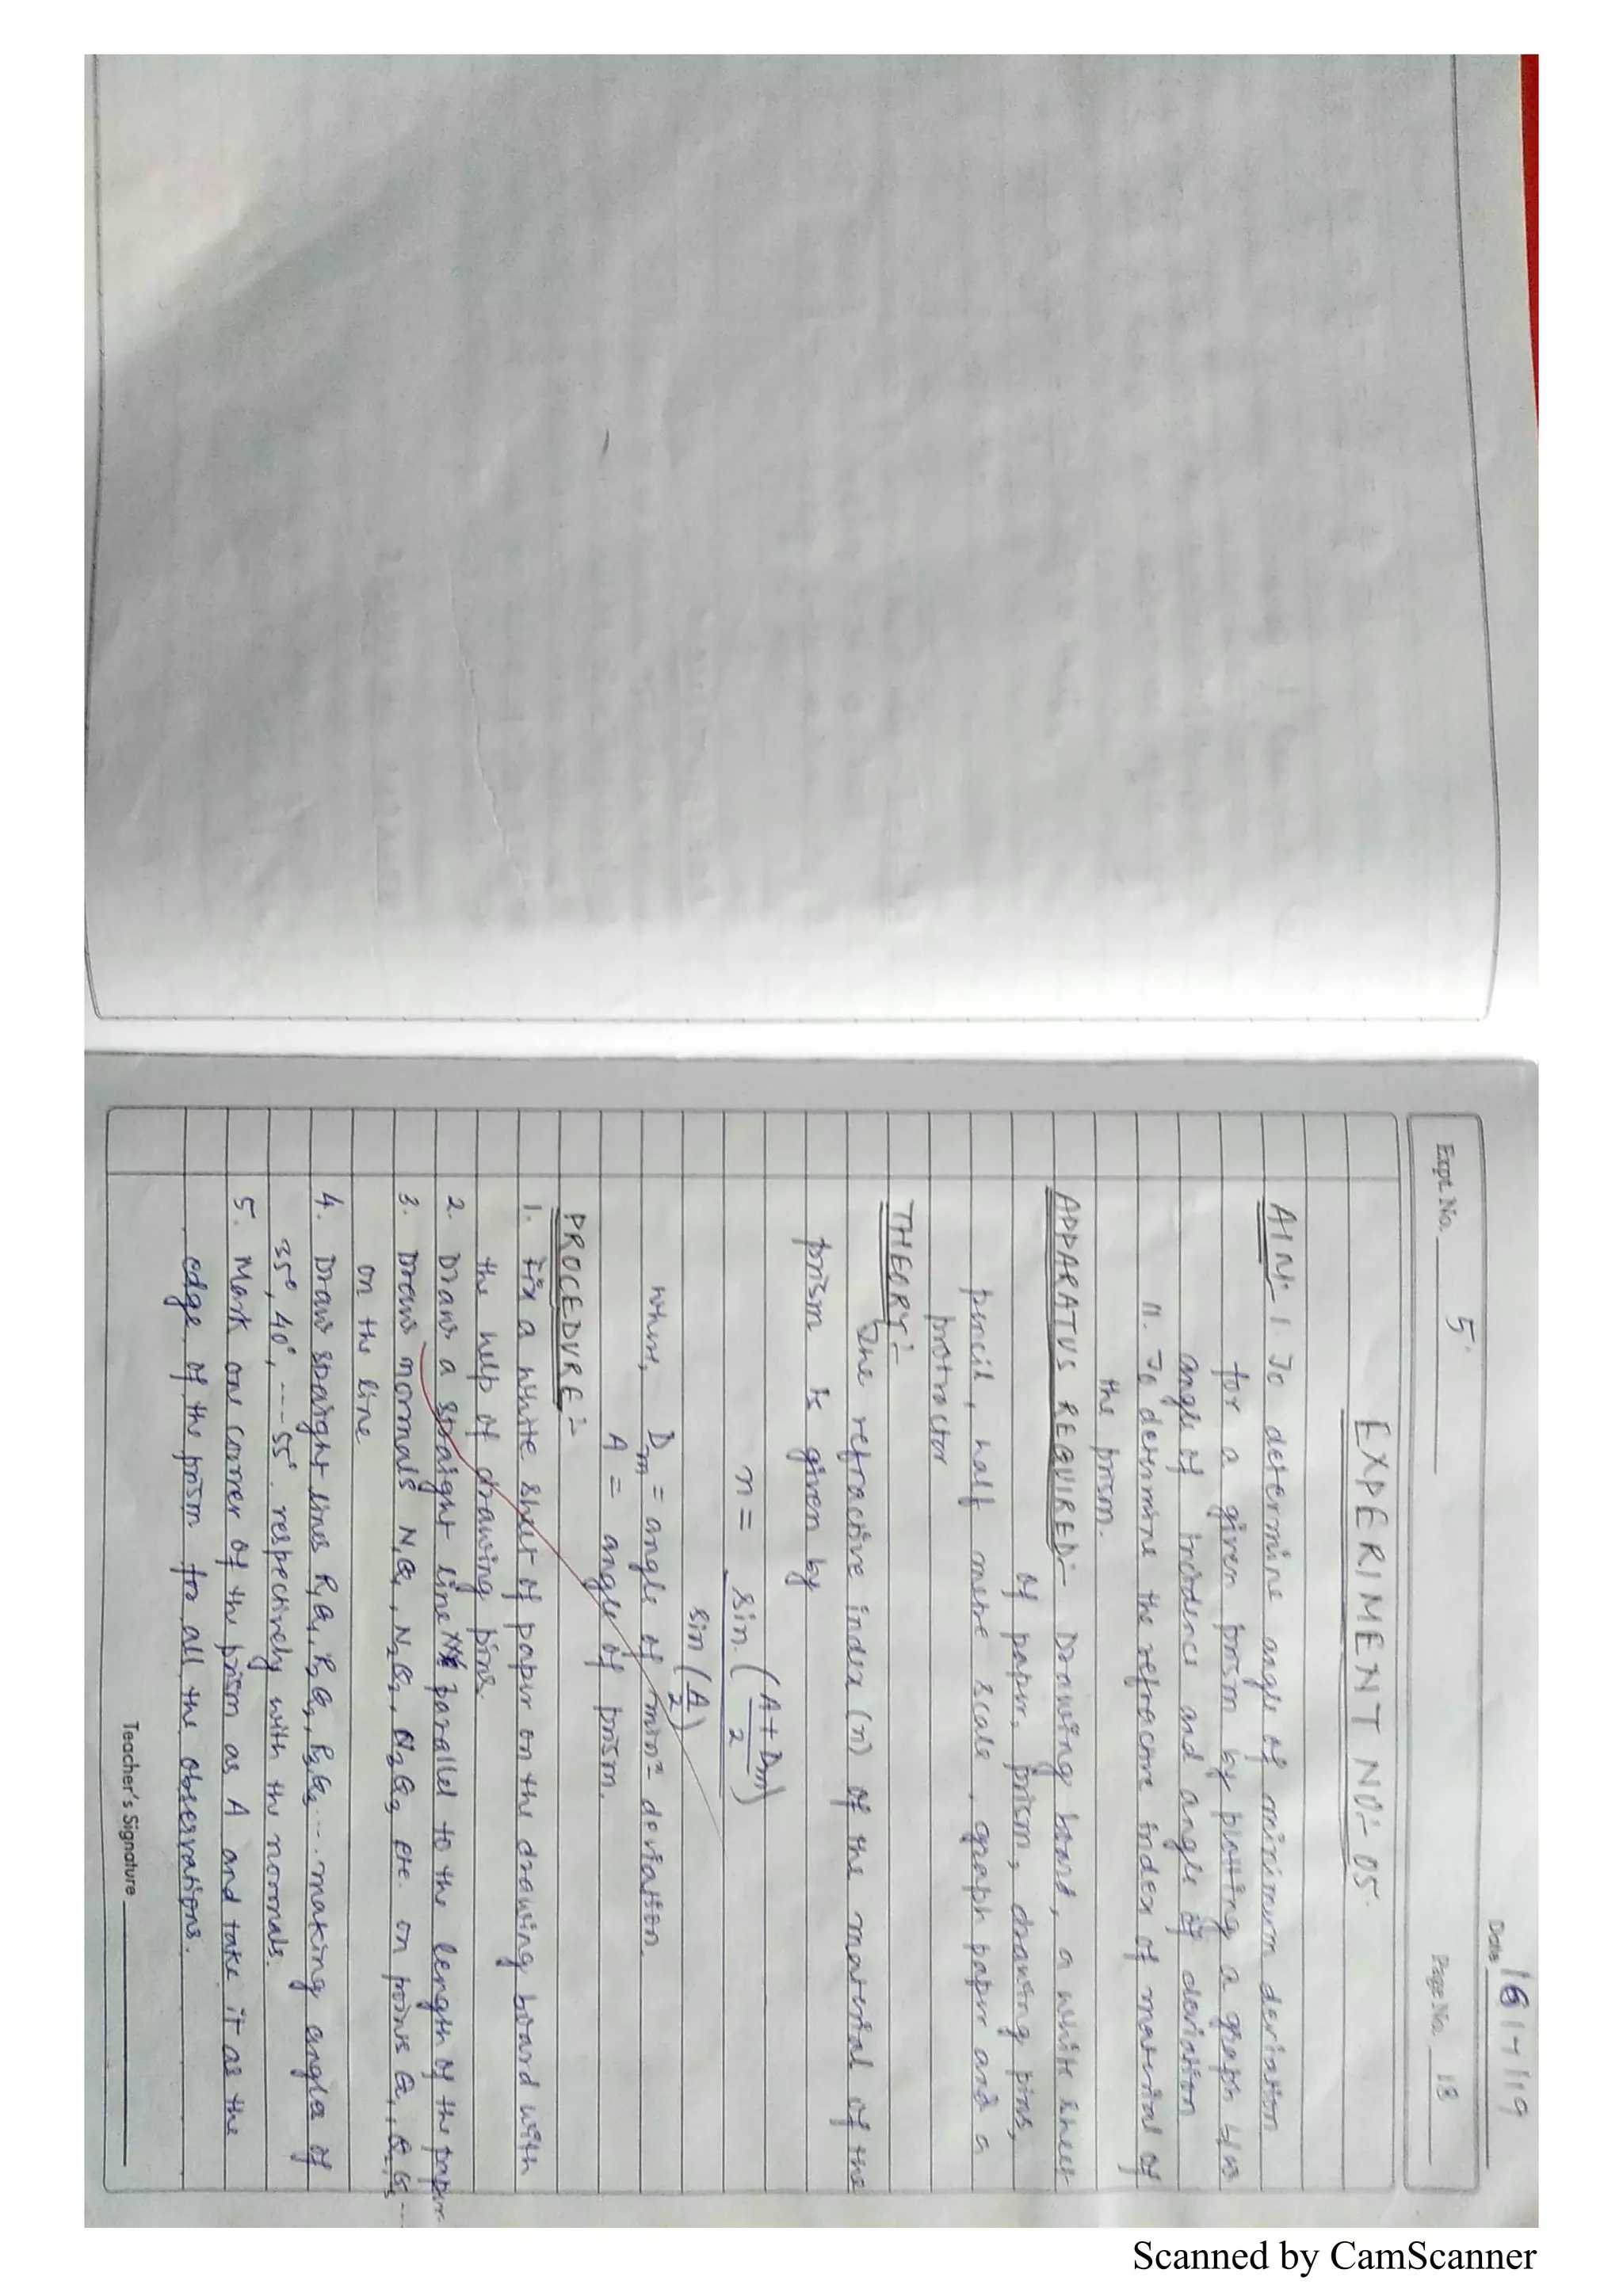 Date 16/7/19
Expt. No. 5.
Page No. 13
EXPERIMENT NO:- 05.
AIM:- I. To determine angle of minimum deviation
for a given prism by plotting a graph b/w
angle of incidence and angle of deviation
II. To determine the refractive index of material of
the prism.
APPARATUS REQUIRED:- Drawing board, a white sheet
of paper, prism, drawing pins,
pencil, half metre scale, graph paper and a
protractor
THEORY:-
The refractive index (n) of the material of the
prism is given by
n = sin (A + Dm / 2)
sin (A/2)
where, Dm = angle of minm deviation.
A = angle of prism.
PROCEDURE:-
1. Fix a white sheet of paper on the drawing board with
the help of drawing pins.
2. Draw a straight line parallel to the length of the paper
3. Draw normals N1Q1, N2Q2, N3Q3 etc. on points Q1, Q2, Q3 ...
on the line
4. Draw straight lines R1Q1, R2Q2, R3Q3 ... making angle of
35°, 40°, ---- 55° respectively with the normals.
5. Mark one corner of the prism as A and take it as the
edge of the prism for all the observations.
Teacher's Signature
Scanned by CamScanner